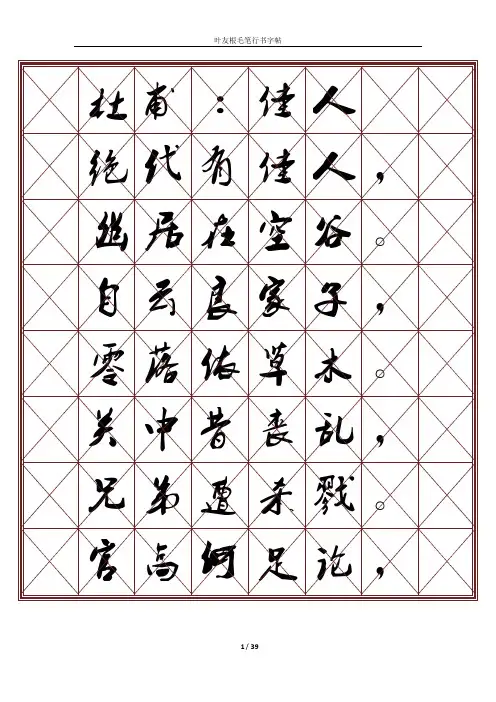 叶友根毛笔行书字帖
杜甫：佳人
绝代有佳人，
幽居在空谷。
自云良家子，
零落依草木。
关中昔丧乱，
兄弟遭杀戮。
官高何足论，
1 / 39